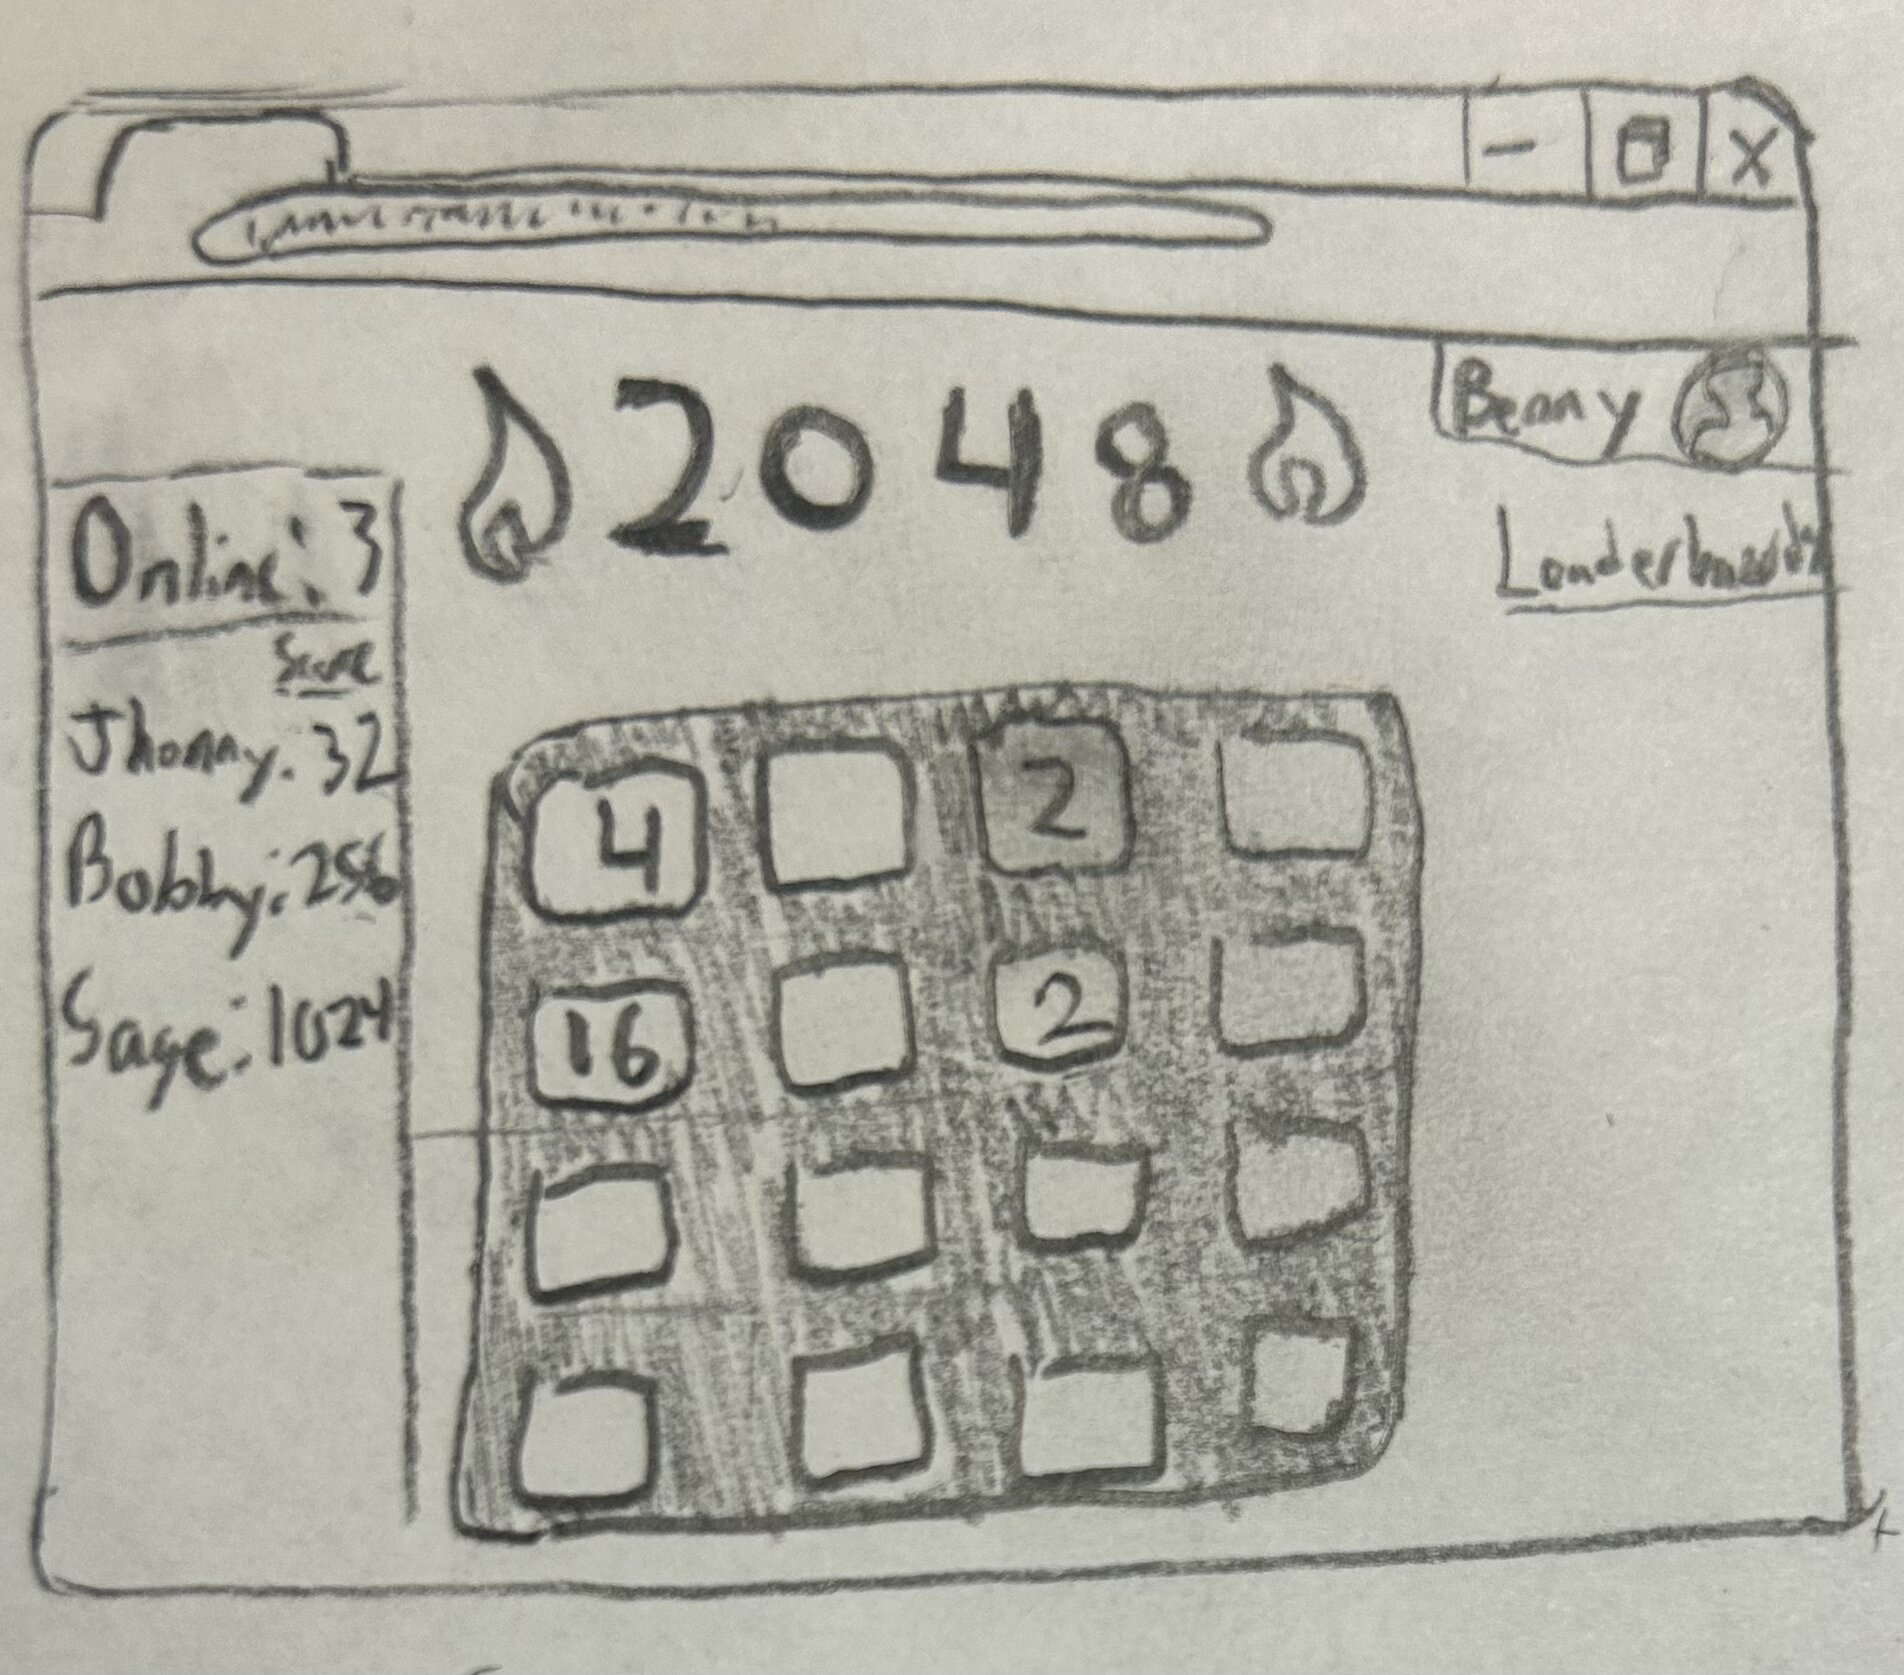 X
2048
Benny
Leaderboards
Online: 3
Score
Jhonny: 32
Bobby: 256
Sage: 1024
4 2
16 2